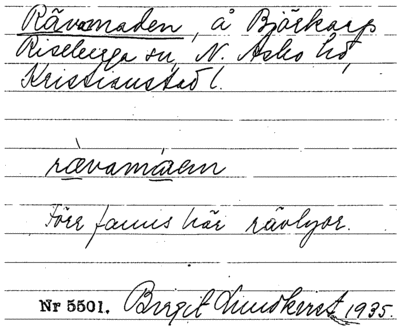 Rävamaden, å Björkarp
Riseberga sn, N. Åsbo hd,
Kristianstad l.
rävamáen
Förr fanns här rävlyor.
Nr 5501. Birgit Lundkvist 1935.